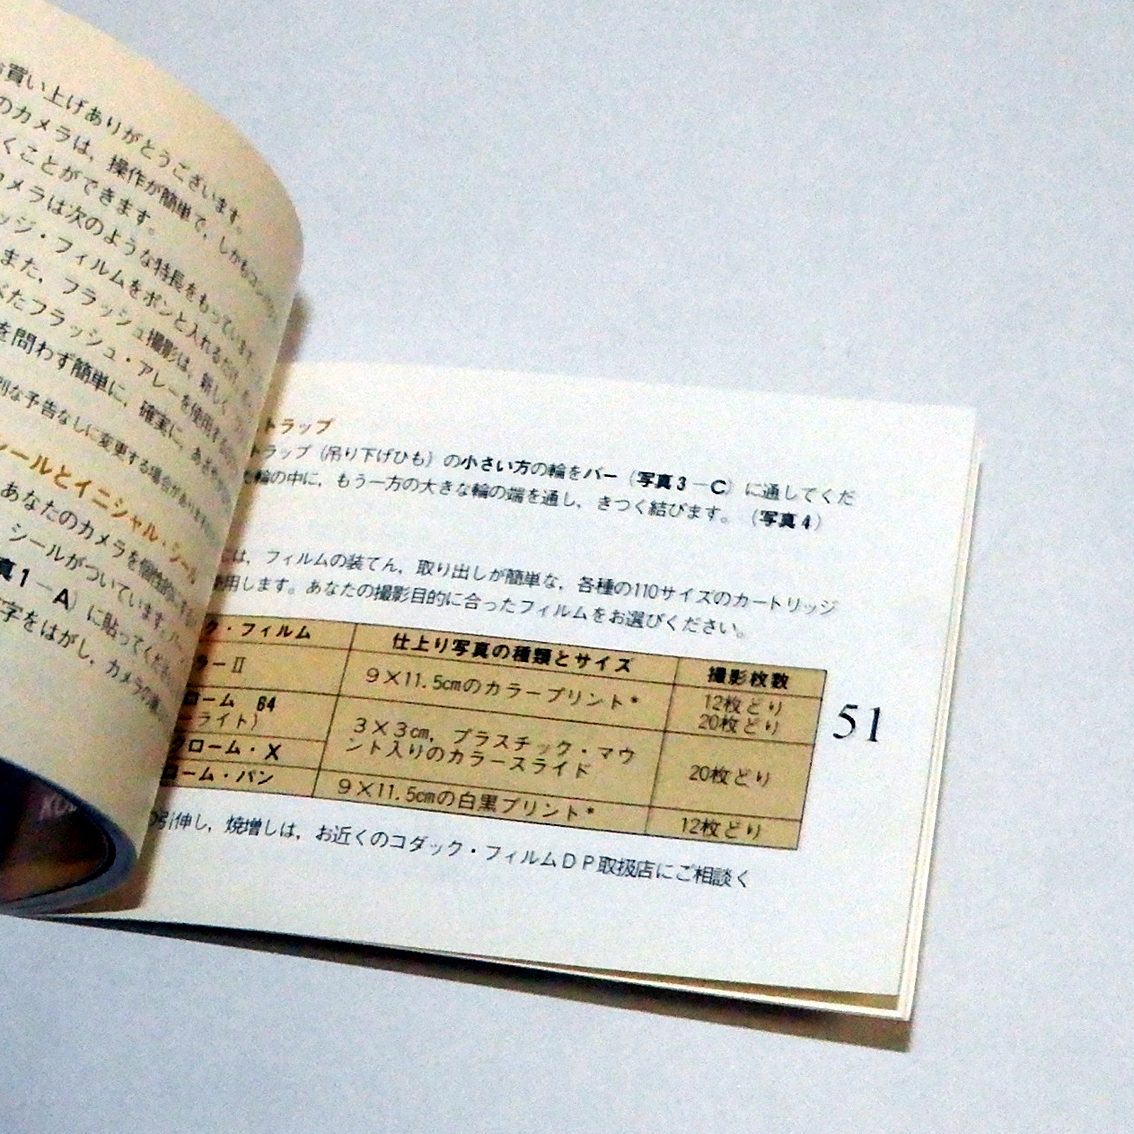 買い上げありがとうございます。
のカメラは、操作が簡単で、しかもコン
くことができます。
カメラは次のような特長をもっています。
ッジ・フィルムをポンと入れるだけ
また、フラッシュ撮影は、新しく
べたフラッシュ・アレーを使用する
を問わず簡単に、確実に、あざや
別な予告なしに変更する場合があります
シールとイニシャル・シール
あなたのカメラを個性的にする
シールがついています。
真1－A）に貼ってくださ
文字をはがし、カメラの
トラップ
トラップ（吊り下げひも）の小さい方の輪をバー（写真3－C）に通してくだ
輪の中に、もう一方の大きな輪の端を通し、きつく結びます。（写真4）
には、フィルムの装てん、取り出しが簡単な、各種の110サイズのカートリッジ
使用します。あなたの撮影目的に合ったフィルムをお選びください。
ク・フィルム 仕上り写真の種類とサイズ 撮影枚数
ラーII 9×11.5cmのカラープリント* 12枚どり
20枚どり
ローム 64 3×3cm，プラスチック・マウ
ーライト） ント入りのカラースライド 20枚どり
クローム・X
ローム・パン 9×11.5cmの白黒プリント* 12枚どり
の引伸し，焼増しは，お近くのコダック・フィルムＤＰ取扱店にご相談く
51